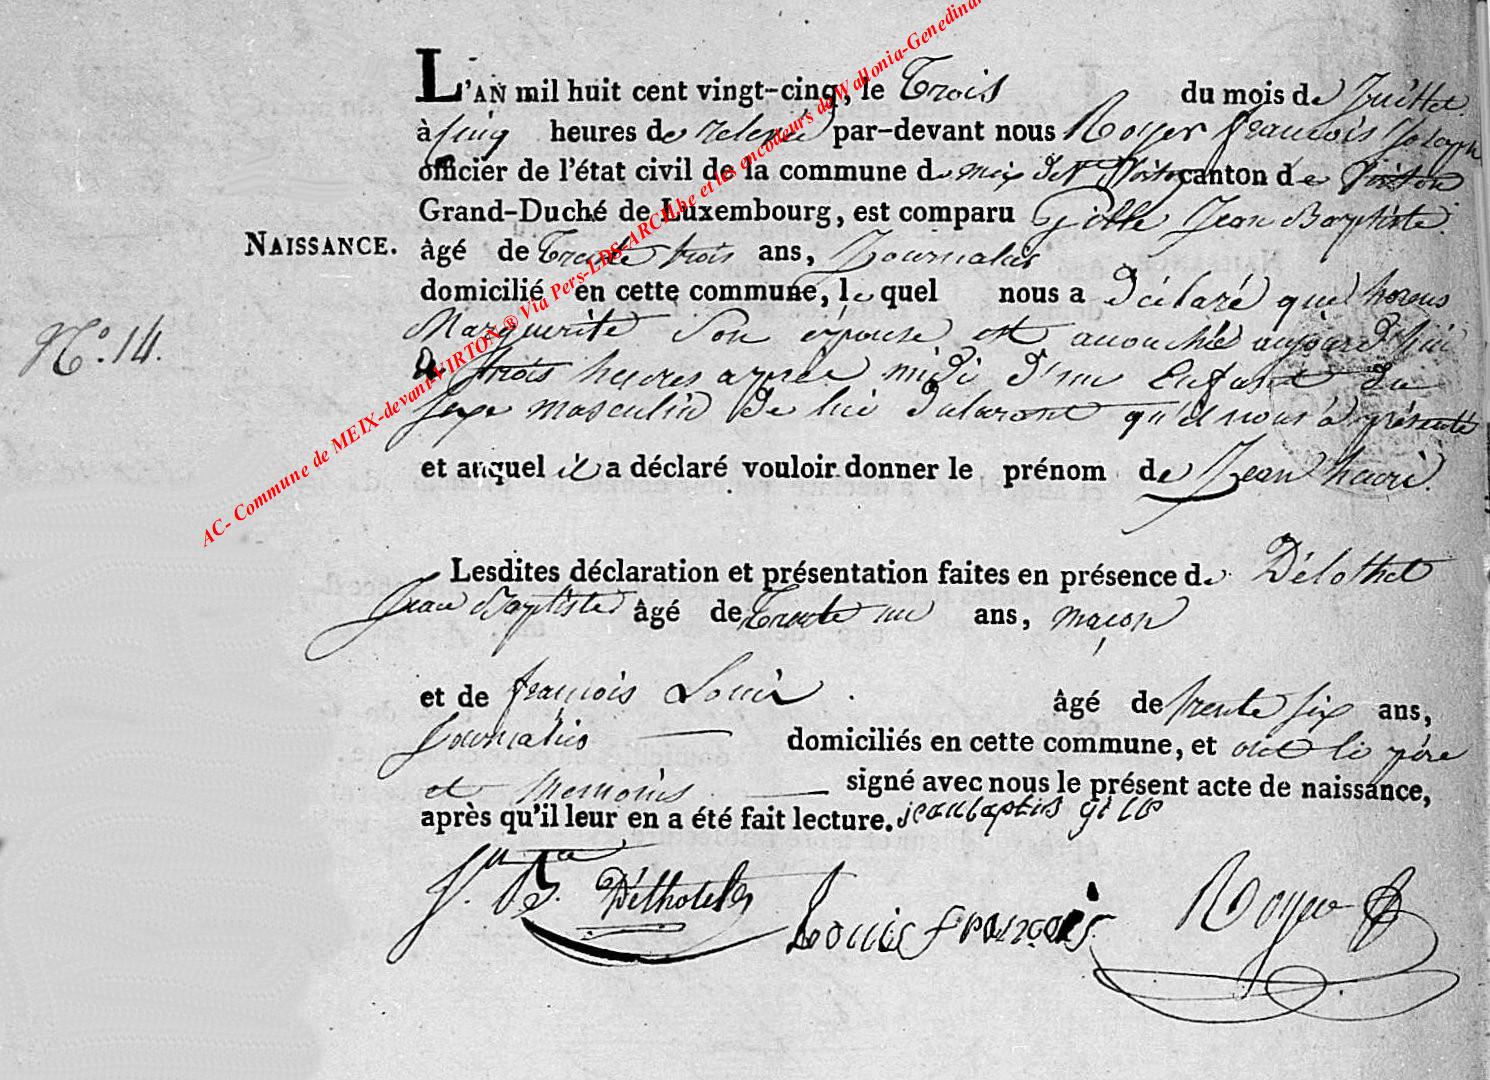 L'AN mil huit cent vingt-cinq, le Trois du mois de Juillet
à cinq heures de relevé par-devant nous Royer françois Joseph
officier de l'état civil de la commune de meix dvt Virton canton de Virton
Grand-Duché de Luxembourg, est comparu Gille Jean Baptiste
NAISSANCE. âgé de Trente trois ans, Journalier
domicilié en cette commune, le quel nous a déclaré que
N.° 14. Marguerite Son épouse est accouchée aujourd'hui
à trois heures après midi d'un Enfant du
sexe masculin de lui déclarant qu'il nous à présenté
et auquel il a déclaré vouloir donner le prénom de Jean henri.
Lesdites déclaration et présentation faites en présence de Délothel
Jean Baptiste âgé de Trente un ans, maçon
et de françois Louis âgé de trente six ans,
Journalier domiciliés en cette commune, et ont le père
et temoins signé avec nous le présent acte de naissance,
après qu'il leur en a été fait lecture. jean baptis gille
J. B. Déthotel
Louis françois
Royer
AC- Commune de MEIX-devant-VIRTON ® Via Pers-LDS-ARCH.be et les encodeurs de Wallonia-Genedinar